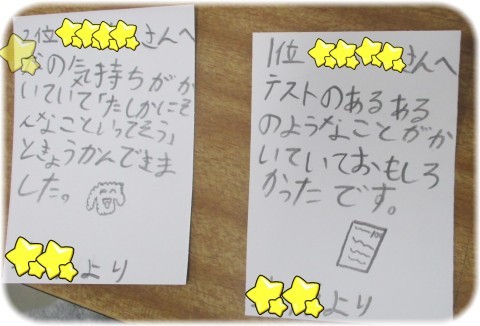 2位 さんへ
の気持ちがか
いていて「たしかにそ
んなこといってそう」
ときょうかんできま
した。
より
1位 さんへ
テストのあるある
のようなことがか
いていておもしろ
かったです。
より